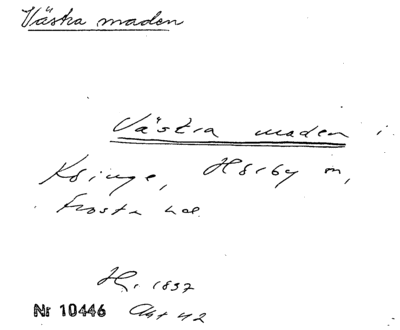 Västra maden
Västra maden i
Ksinge, Hörby sn,
Frosta hd.
H. 1837
Nr 10446 Akt 42